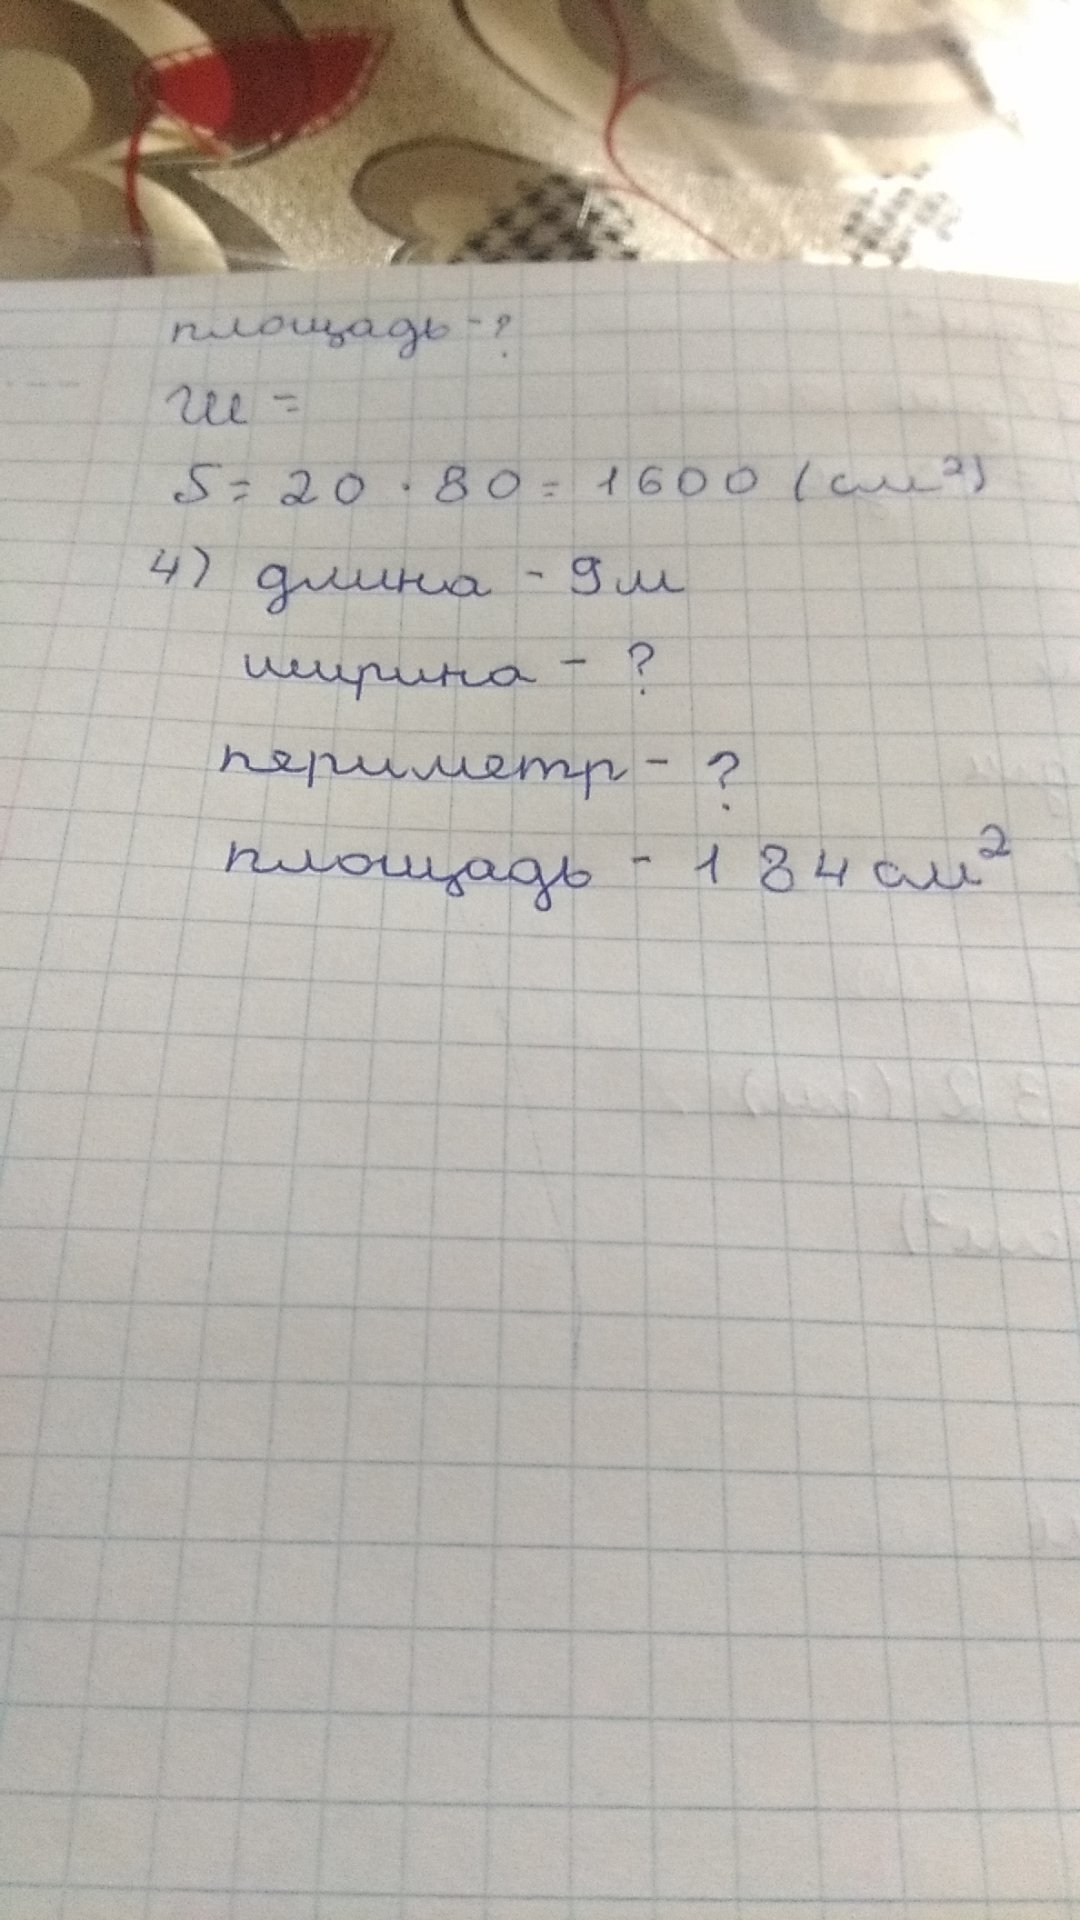 площадь - ?
Ш =
S = 20 · 80 = 1600 (см²)
4) длина - 9м
ширина - ?
периметр - ?
площадь - 184 см²